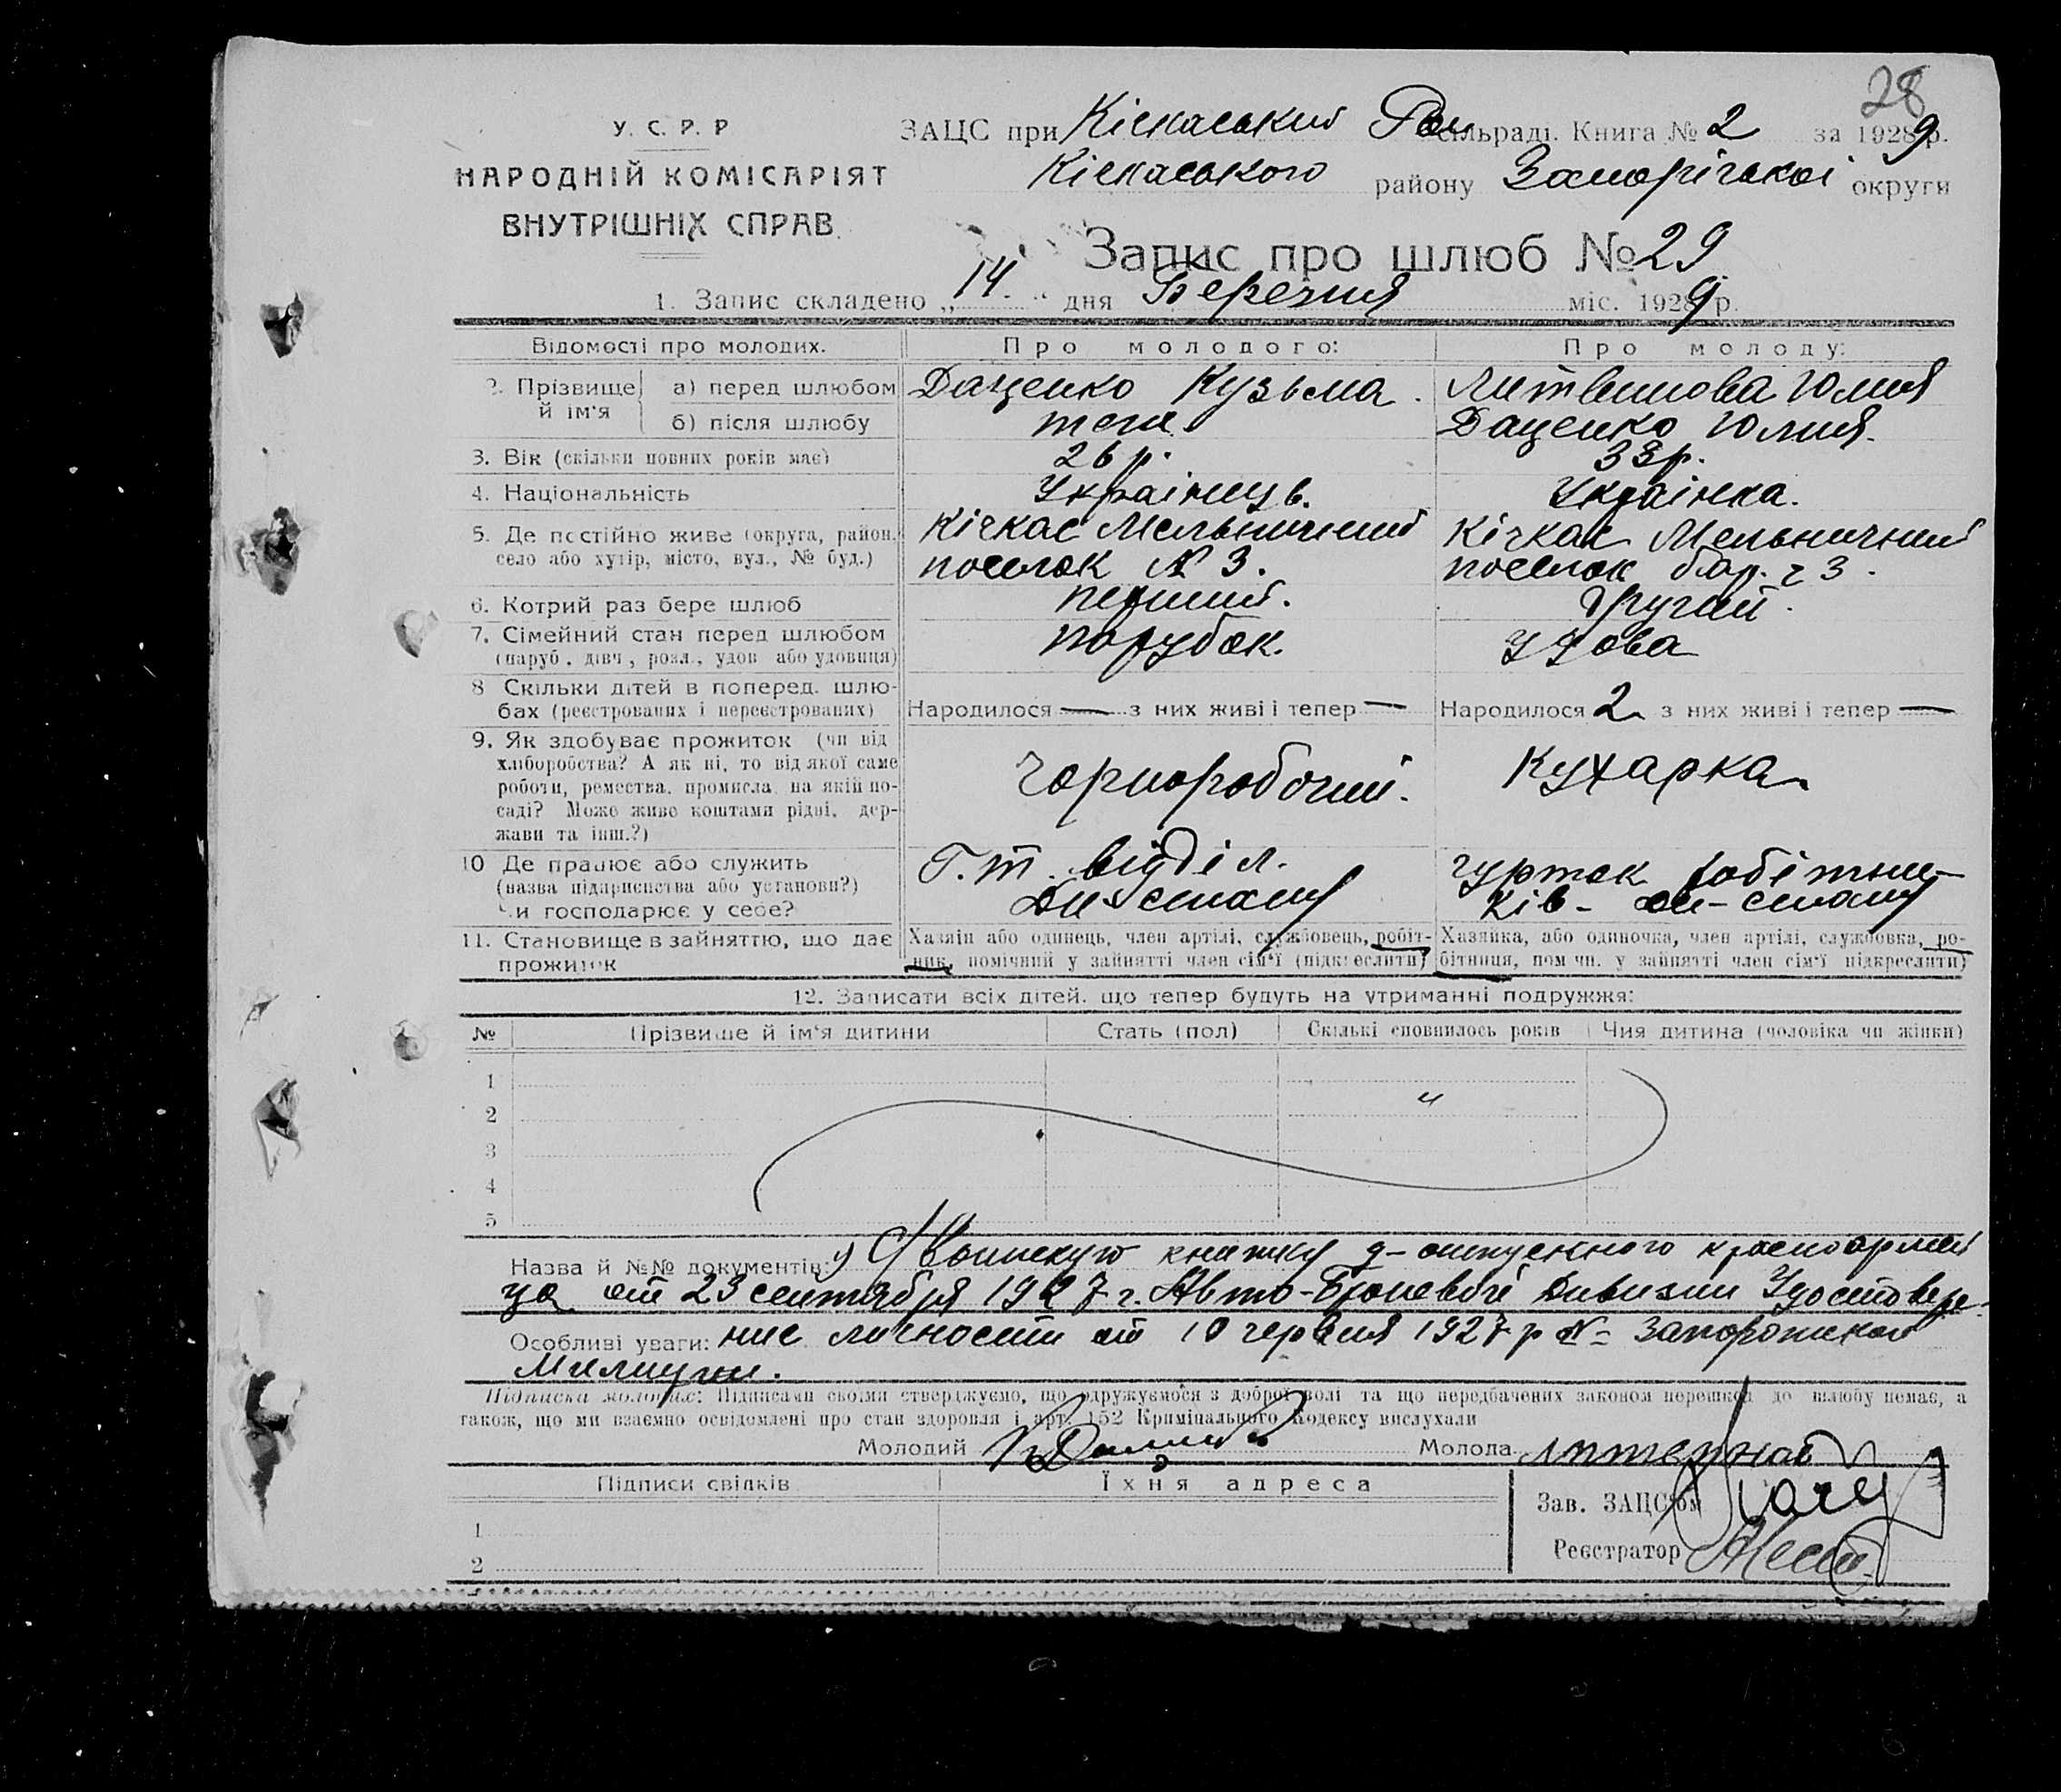 28
У. С. Р. Р
НАРОДНІЙ КОМІСАРІЯТ
ВНУТРІШНІХ СПРАВ
ЗАЦС при Кічкаський Рай сільраді. Книга № 2 за 1929 р.
Кічкаського району Запорізької округи
Запис про шлюб № 29
1. Запис складено „14" дня Березня міс. 1929 р.
Відомості про молодих. Про молодого: Про молоду:
2. Прізвище й ім'я а) перед шлюбом Даценко Кузьма. Литвинова Юлия
б) після шлюбу теж Даценко Юлия.
3. Вік (скільки повних років має) 26 р. 33 р.
4. Національність Українець. Українка.
5. Де постійно живе (округа, район, Кічкас Мельничний Кічкас Мельничний
село або хутір, місто, вул., № буд.) поселок № 3. поселок бар. ч 3.
6. Котрий раз бере шлюб перший. другий.
7. Сімейний стан перед шлюбом парубок. Удова
(паруб, дівч, розл., удов або удовиця)
8 Скільки дітей в поперед. шлю-
бах (реєстрованих і нереєстрованих) Народилося — з них живі і тепер — Народилося 2 з них живі і тепер —
9. Як здобуває прожиток (чи від
хліборобства? А як ні, то від якої саме
роботи, ремества, промисла, на якій по- Чорноробочий. Кухарка
саді? Може живе коштами рідні, дер-
жави та інш.?)
10 Де працює або служить Г.т. відділ. гурток робітни-
(назва підприємства або установи?)
Чи господарює у себе? ків-
11. Становище в зайняттю, що дає Хазяін або одинець, член артілі, службовець, робіт- Хазяйка, або одиночка, член артілі, службовка, ро-
прожиток ник, помічний у зайнятті член сім'ї (підкреслити) бітниця, пом чн. у зайнятті член сім'ї підкреслити)
12. Записати всіх дітей, що тепер будуть на утриманні подружжя:
№ Прізвище й ім'я дитини Стать (пол) Скількі сповнилось років Чия дитина (чоловіка чи жінки)
1
2
3
4
5
Назва й №№ документів: Воинскую книжку д-отпускного красноармей
ца от 23 сентября 1927 г. Авто-Броневой Дивизии Удостовере-
Особливі уваги: ние личности от 10 червня 1927 р № Запорожской
Милиции.
Підписи молодих: Підписами своїми стверджуємо, що одружуємося з доброї волі та що передбачених законом перешкод до шлюбу немає, а
також, що ми взаємно освідомлені про стан здоровля і арт. 152 Кримінального Кодексу вислухали
Молодий Молода
Підписи свідків Їхня адреса
Зав. ЗАЦС'ом
1
Реєстратор
2